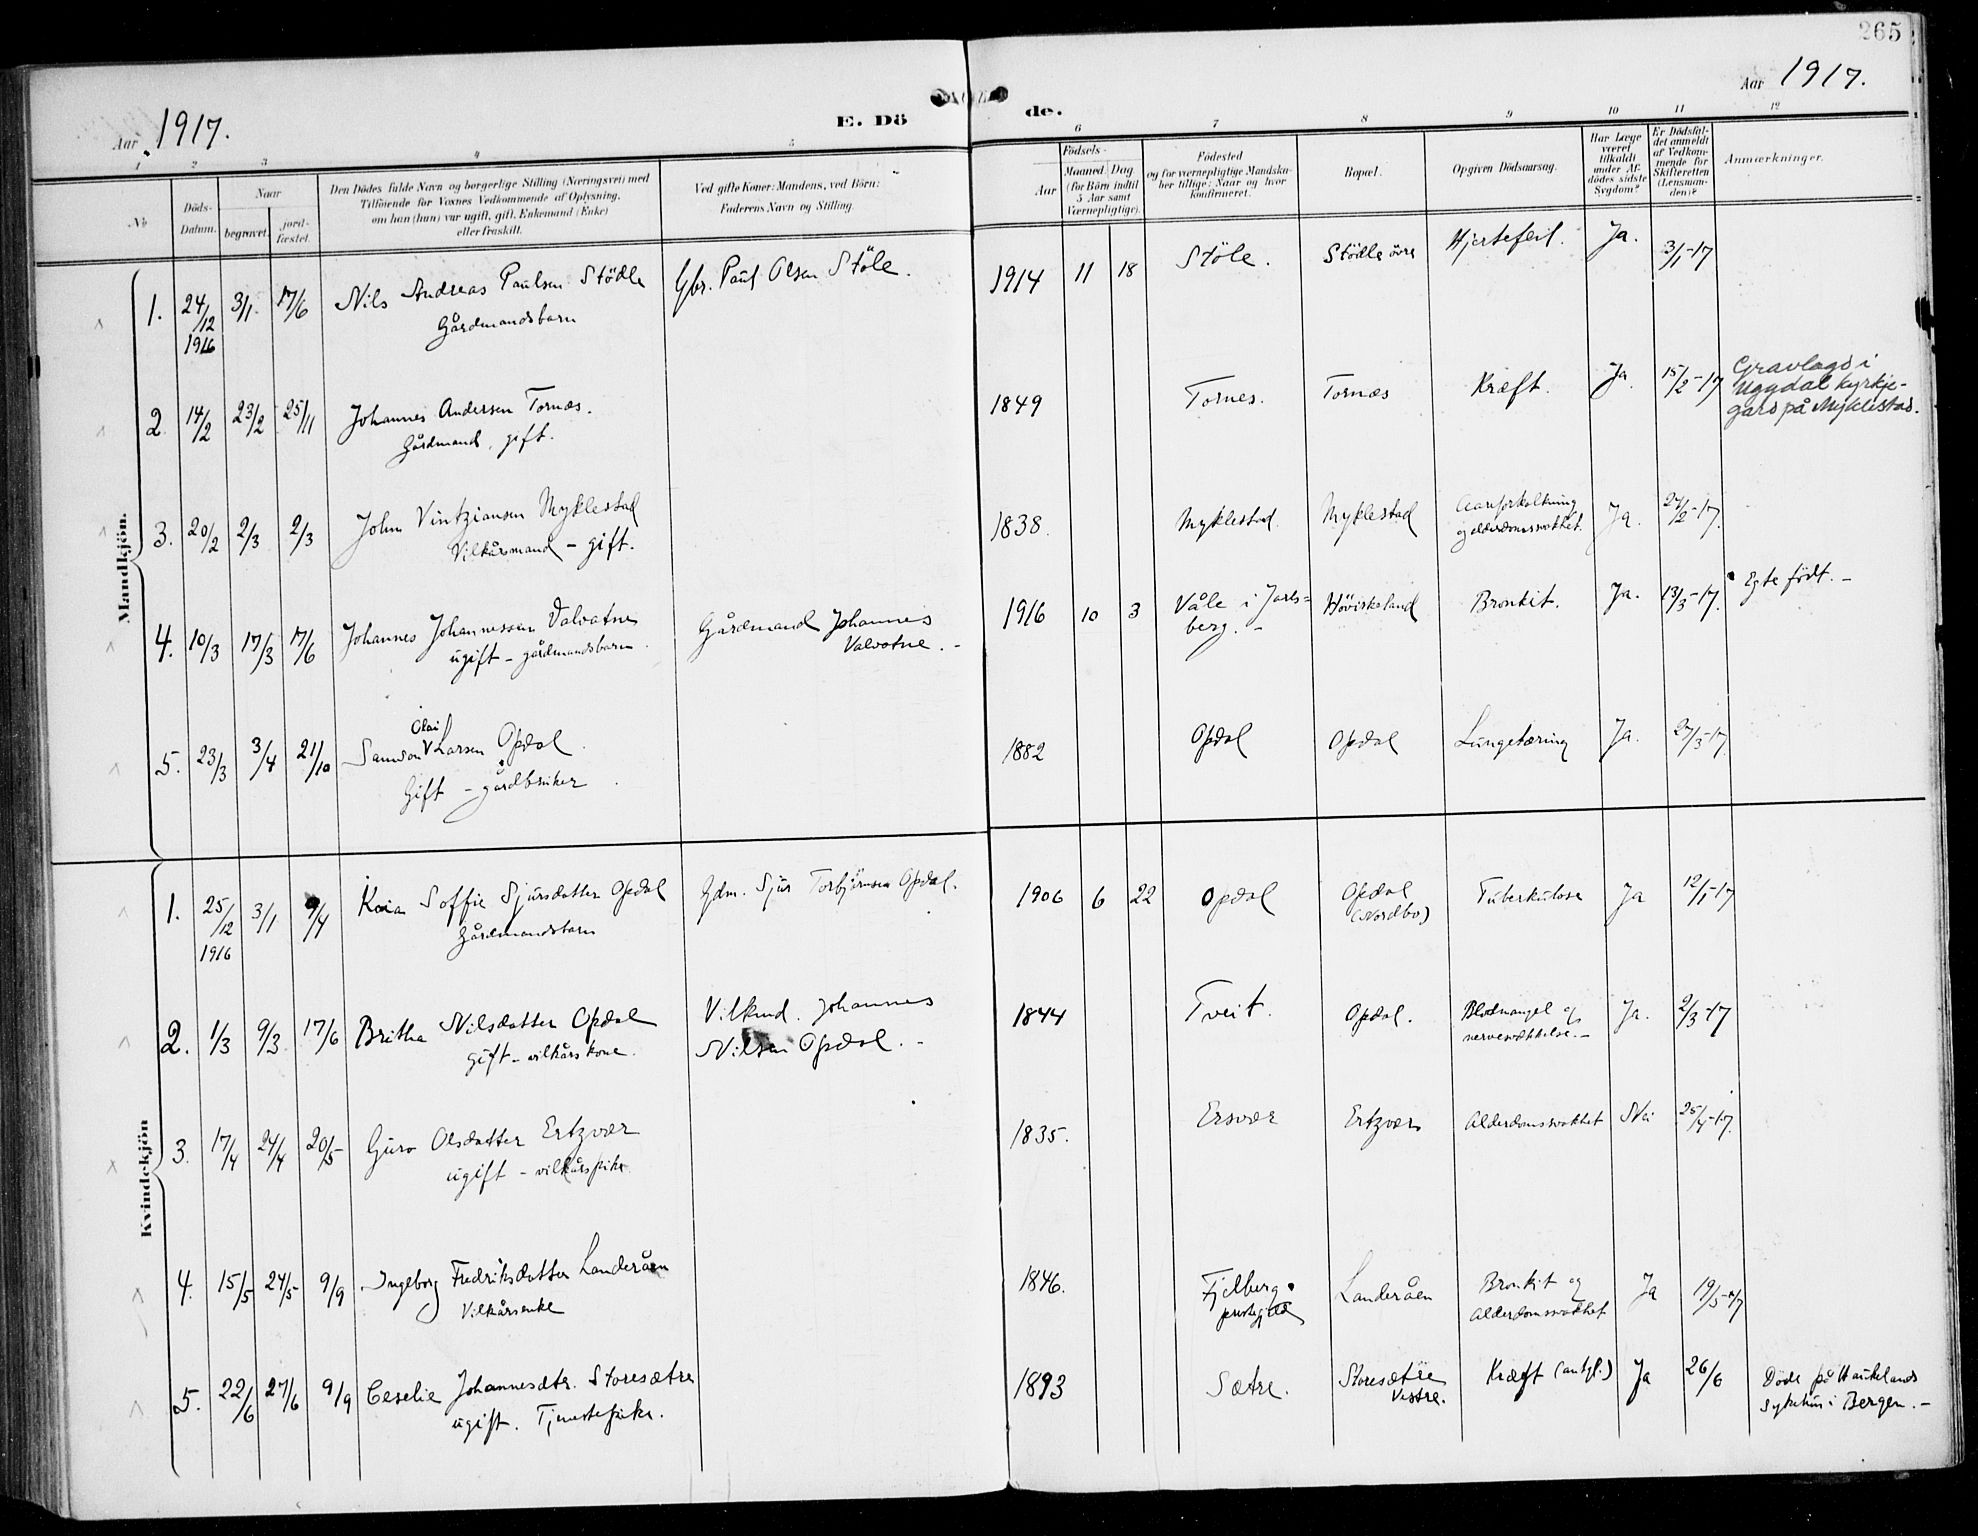 265
Aar 1917.
E. Dö
de.
Aar 1917.
1 2 3 4 5
6 7 8 9 10 11 12
No
Döds-
Datum.
Naar
begravet.
jord-
fæstet.
Den Dödes fulde Navn og borgerlige Stilling (Næringsvei) med
Tilföiende for Voxnes Vedkommende af Oplysning,
om han (hun) var ugift, gift, Enkemand (Enke)
eller fraskilt.
Ved gifte Koner: Mandens, ved Börn:
Faderens Navn og Stilling.
Födsels-
Aar
Maaned Dag
(for Börn indtil
5 Aar samt
Værnepligtige).
Födested
og for værnepligtige Mandska-
ber tillige: Naar og hvor
konfirmeret.
Bopæl.
Opgiven Dödsaarsag.
Har Læge
været
tilkaldt
under Af-
dödes sidste
Sygdom?
Er Dödsfal-
det anmeldt
af Vedkom-
mende for
Skifteretten
(Lensman-
den)?
Anmærkninger.
Mandkjön.
1. 24/12 1916 3/1 17/6 Nils Andreas Paulsen Stödle Gbr. Paul Olsen Stöle. 1914 11 18 Stöle. Stödle övre Hjertefeil. Ja. 3/1-17
Gårdmandsbarn
2. 14/2 23/2 25/11 Johannes Andersen Tornæs. 1849 Tornes. Tornæs Kræft. Ja. 15/2-17 Gravlagd i
Uggdal kyrkje-
gard på Myklestad.
Gårdmand, gift.
3. 20/2 2/3 2/3 John Vintziansen Myklestad 1838. Myklestad. Myklestad Aareforkalkning Ja. 24/2-17.
og alderdomssvakhet.
Vilkårsmand - gift.
4. 10/3 17/3 17/6 Johannes Johannessen Valvatne Gårdmand Johannes 1916 10 3 Våle i Jarls= Höviskeland Bronkit. Ja. 13/3-17. Egte födt. -
ugift - gårdmandsbarn. Valvatne. - berg. -
Olai
5. 23/3 3/4 21/10 Samson V Larsen Opdal 1882 Opdal Opdal Lungetæring Ja. 27/3-17.
Gift - gårdbruker
Kvindekjön
1. 25/12 1916 3/1 9/4 Kaia Soffie Sjursdatter Opdal Gdm. Sjur Torbjörnsen Opdal. 1906 6 22 Opdal Opdal Tuberkulose Ja 12/1-17
Gårdmandsbarn (Nordbö)
2. 1/3 9/3 17/6 Britha Nilsdatter Opdal Vilkmd. Johannes 1844 Tveit. Opdal. Blodmangel og Ja. 2/3-17
gift - vilkårskone. Nilsen Opdal. - nervesvækkelse. -
3. 17/4 24/4 20/5 Guro Olsdatter Ertzvær 1835. Ersvær Ertzvær Alderdomssvakhet Nei 25/4-17.
ugift - vilkårspike
4. 15/5 24/5 9/9 Ingeborg Fredriksdatter Landeråen 1846. Fjelberg Landeråen Bronkit og Ja 19/5-17
Vilkårsenke prestegjeld alderdomssvakhet
5. 22/6 27/6 9/9 Ceselie Johannesdtr. Storesætre 1893 Sætre. Storesætre Kræft (antgl.) Ja 26/6 Döde på Haukelands
ugift. Tjenestepike. Vestre. sykehus i Bergen. -